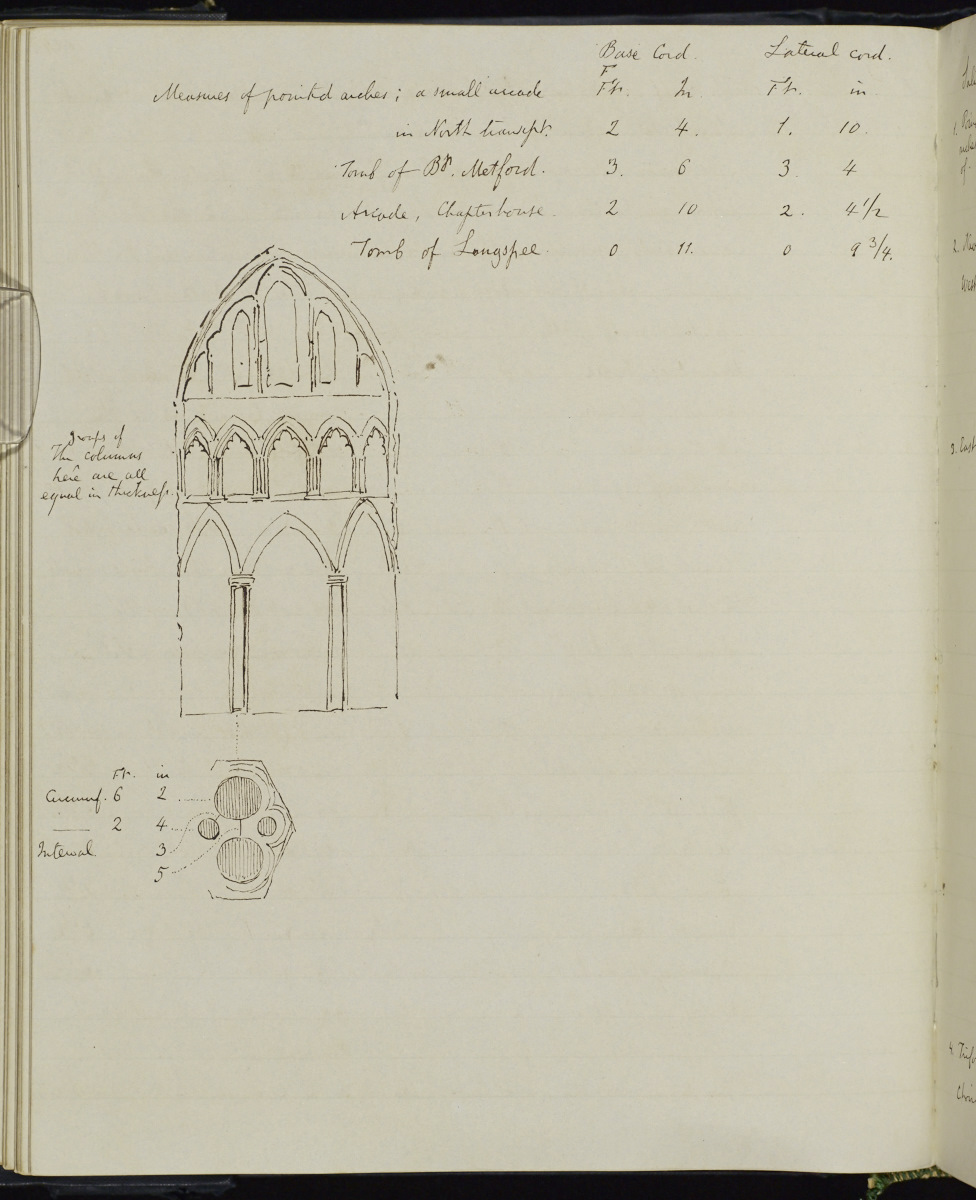 Base Cord. Lateral cord.
F
Measures of pointed arches; a small arcade Ft. In. Ft. in
in North transept. 2 4. 1. 10.
Tomb of Bp. Metford. 3. 6 3. 4
Arcade, Chapterhouse. 2 10 2. 4 1/2
Tomb of Longspee. 0 11. 0 9 3/4.
groups of
The columns
here are all
equal in thickness.
Ft. in
Circumf. 6 2
—— 2 4
Interval 3
5
1.
of
2.
West
3. East
4.